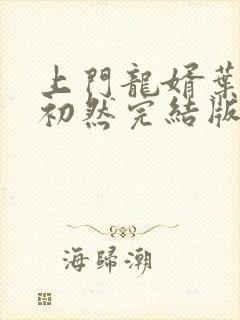 上門龍婿葉
初然完結版
海歸潮